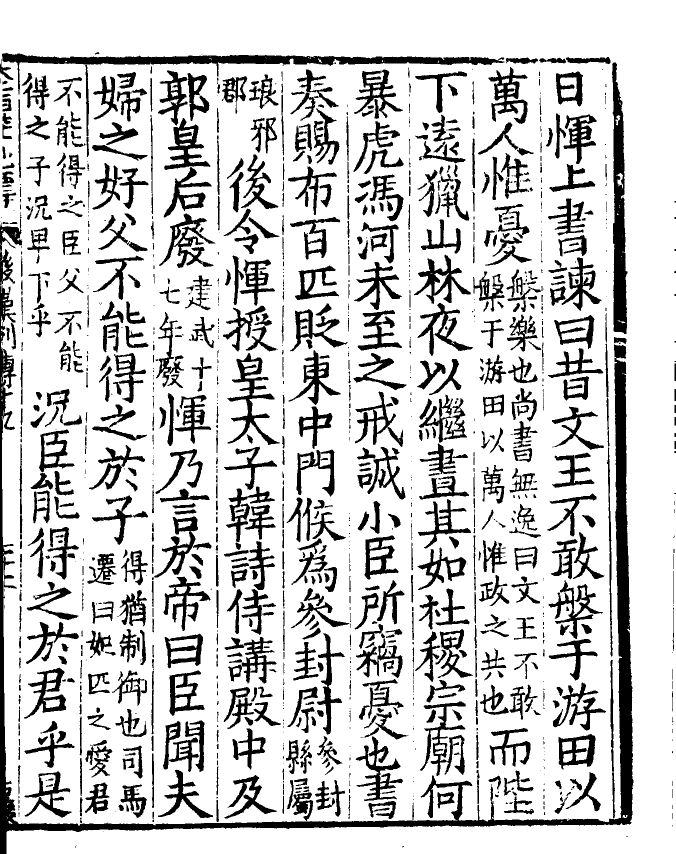 日惲上書諫曰昔文王不敢槃于游田以
萬人惟憂槃樂也尚書無逸曰文王不敢槃于游田以萬人惟政之共也而陛
下遠獵山林夜以繼晝其如社稷宗廟何
暴虎馮河未至之戒誠小臣所竊憂也書
奏賜布百匹貶東中門候爲參封尉參封縣屬
琅邪郡後令惲授皇太子韓詩侍講殿中及
郭皇后廢建武十七年廢惲乃言於帝曰臣聞夫
婦之好父不能得之於子得猶制御也司馬遷曰妃匹之愛君
不能得之臣父不能得之子況卑下乎況臣能得之於君乎是